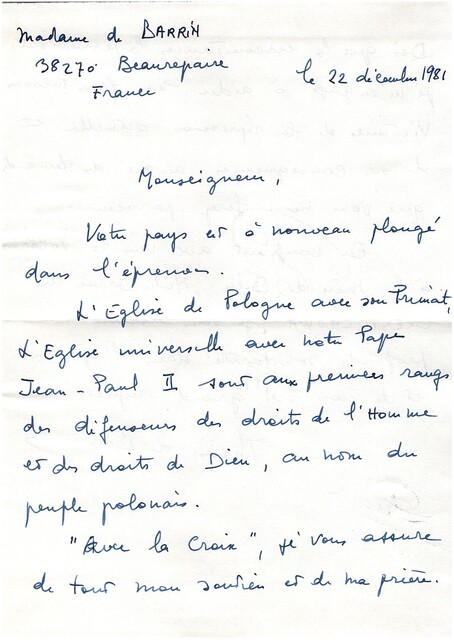 Madame de BARRIN
38270 Beaurepaire
France
le 22 décembre 1981
Monseigneur,
Votre pays est à nouveau plongé
dans l'épreuve.
L'Eglise de Pologne avec son Primat,
L'Eglise universelle avec notre Pape
Jean-Paul II sont aux premiers rangs
des défenseurs des droits de l'Homme
et des droits de Dieu, au nom du
peuple polonais.
"Avec la Croix", je vous assure
de tout mon soutien et de ma prière.